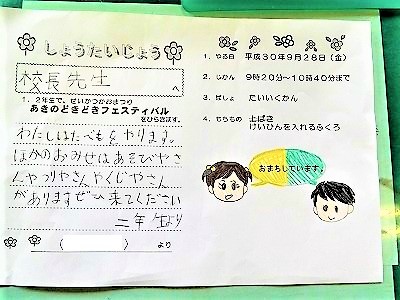 しょうたいじょう
校長先生 へ
1、2年生で、せいかつかおまつり
あきのどきどきフェスティバル
をひらきます。
わたしはたべもをやります。
ほかのおみせはあそびやさ
んやつりやさんやくじやさん
がありますぜひ来てください
二年 生より
( ) より
1．やる日 平成30年9月28日（金）
2．じかん 9時20分～10時40分まで
3．ばしょ たいいくかん
4．もちもの 上ばき
けいひんを入れるふくろ
おまちしています。